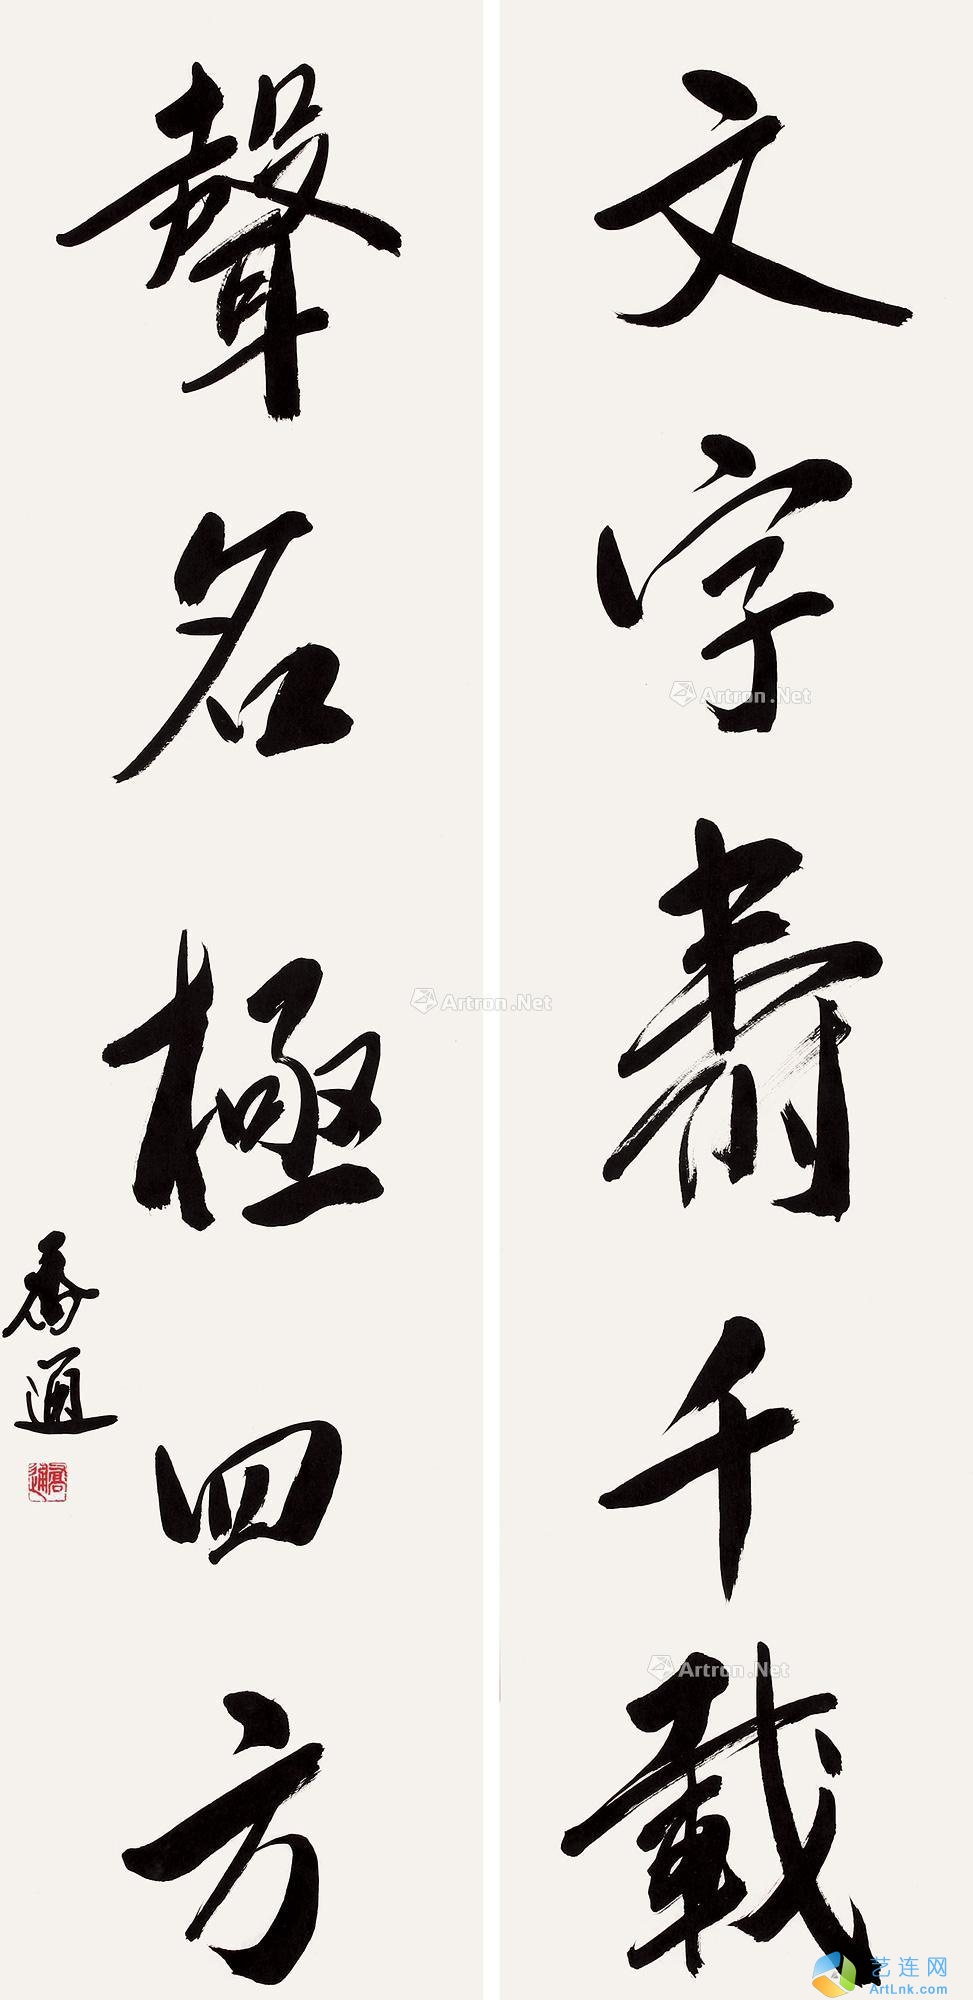 文字壽千載
聲名極四方
喬通
喬通
Artron.Net
Artron.Net
Artron.Net
艺连网
ArtLnk.com